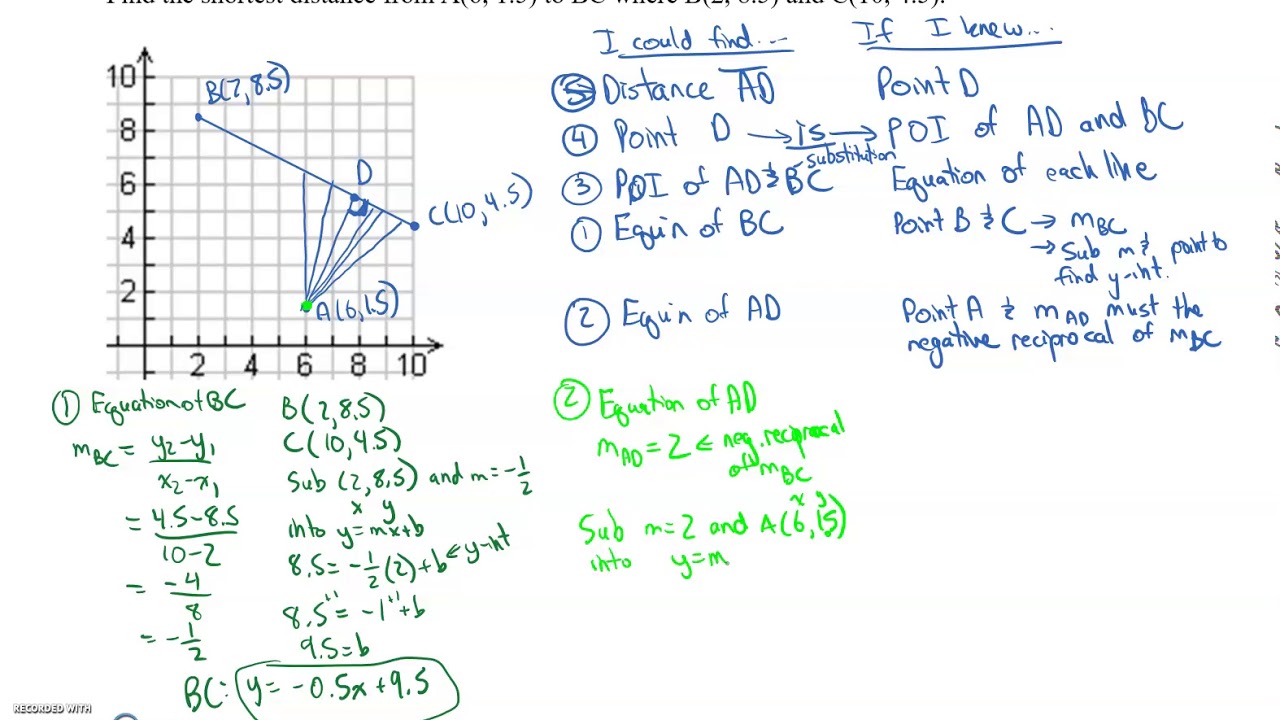 Find the shortest distance from A(6, 1.5) to BC where B(2, 8.5) and C(10, 4.5).
I could find... If I knew...
⑤ Distance AD Point D
④ Point D → is → POI of AD and BC
substitution
③ POI of AD & BC Equation of each line
① Equ'n of BC Point B & C → m BC
→ Sub m & point to
find y-int.
② Equ'n of AD Point A & m AD must the
negative reciprocal of m BC
10
8
6
4
2
0 2 4 6 8 10
B(2, 8.5)
D
C(10, 4.5)
A(6, 1.5)
① Equation of BC
m BC = y2-y1
x2-x1
= 4.5-8.5
10-2
= -4
8
= -1
2
B(2, 8.5)
C(10, 4.5)
Sub (2, 8.5) and m = -1/2
x y
into y=mx+b
8.5 = -1/2(2)+b ← y-int
8.5 +1 = -1 +1 +b
9.5 = b
BC: y = -0.5x+9.5
② Equation of AD
m AD = 2 ← neg. reciprocal
of m BC
x y
Sub m=2 and A(6, 1.5)
into y=m
RECORDED WITH